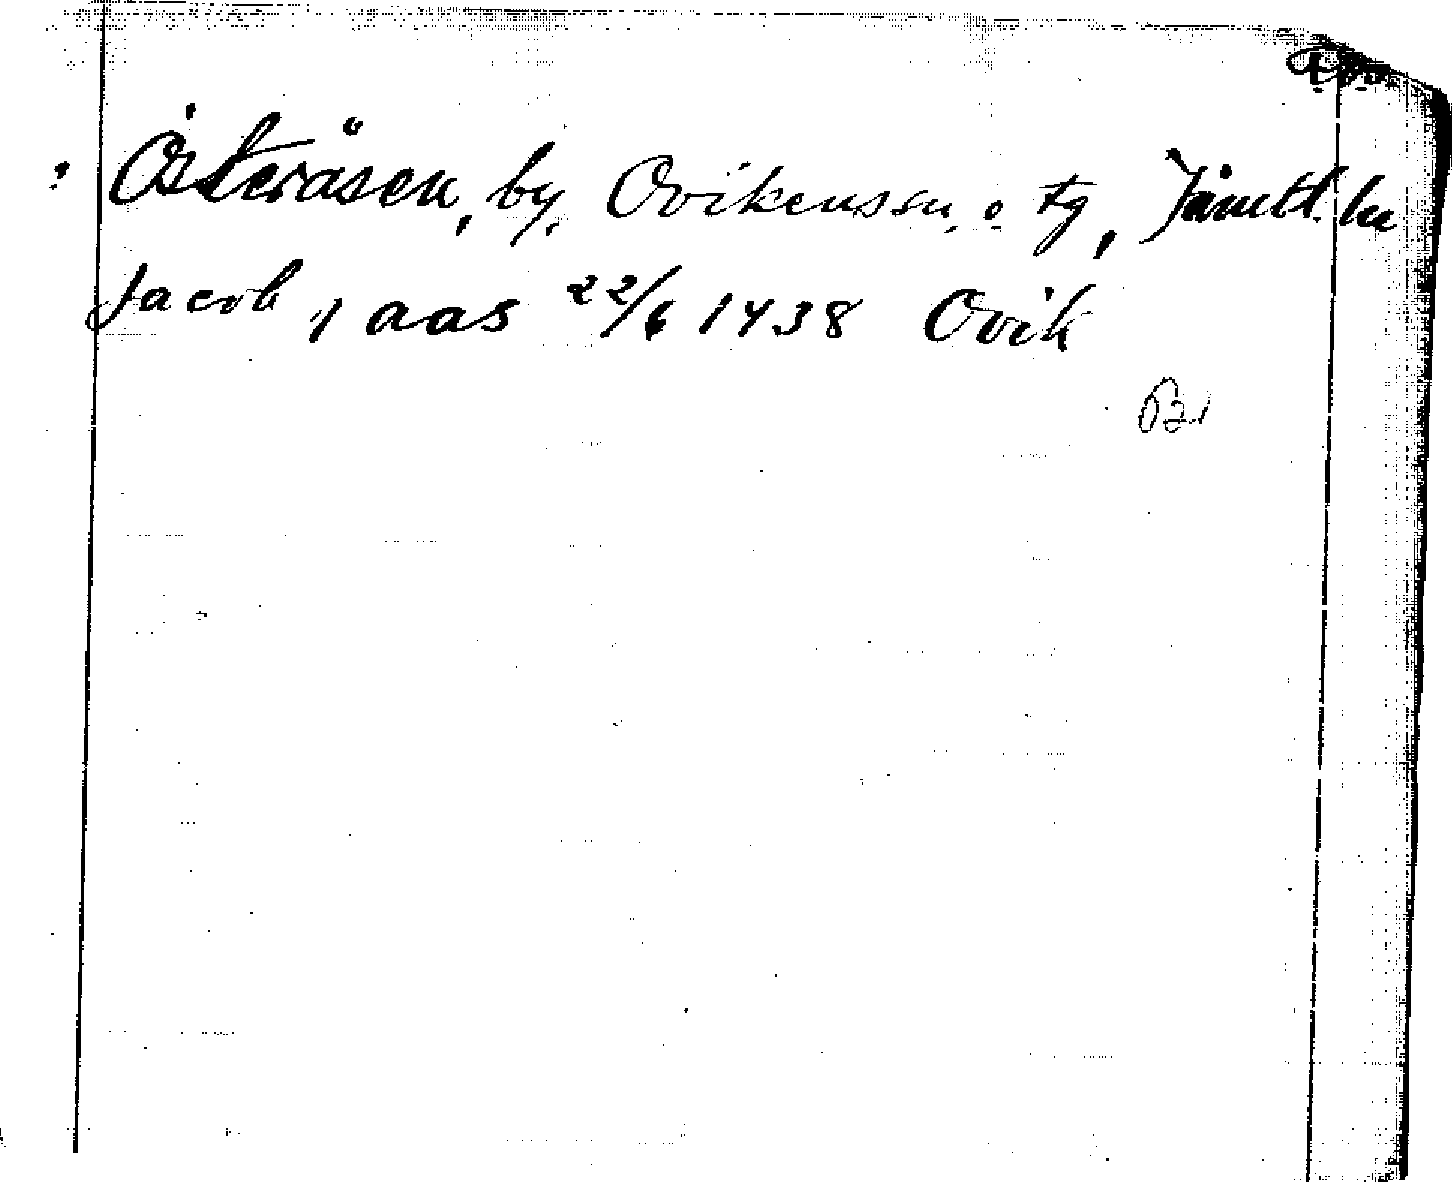 : Österåsen, by, Ovikens sn. o. tg, Jämtl. län
Jacob j aas 22/6 1438 Ovik